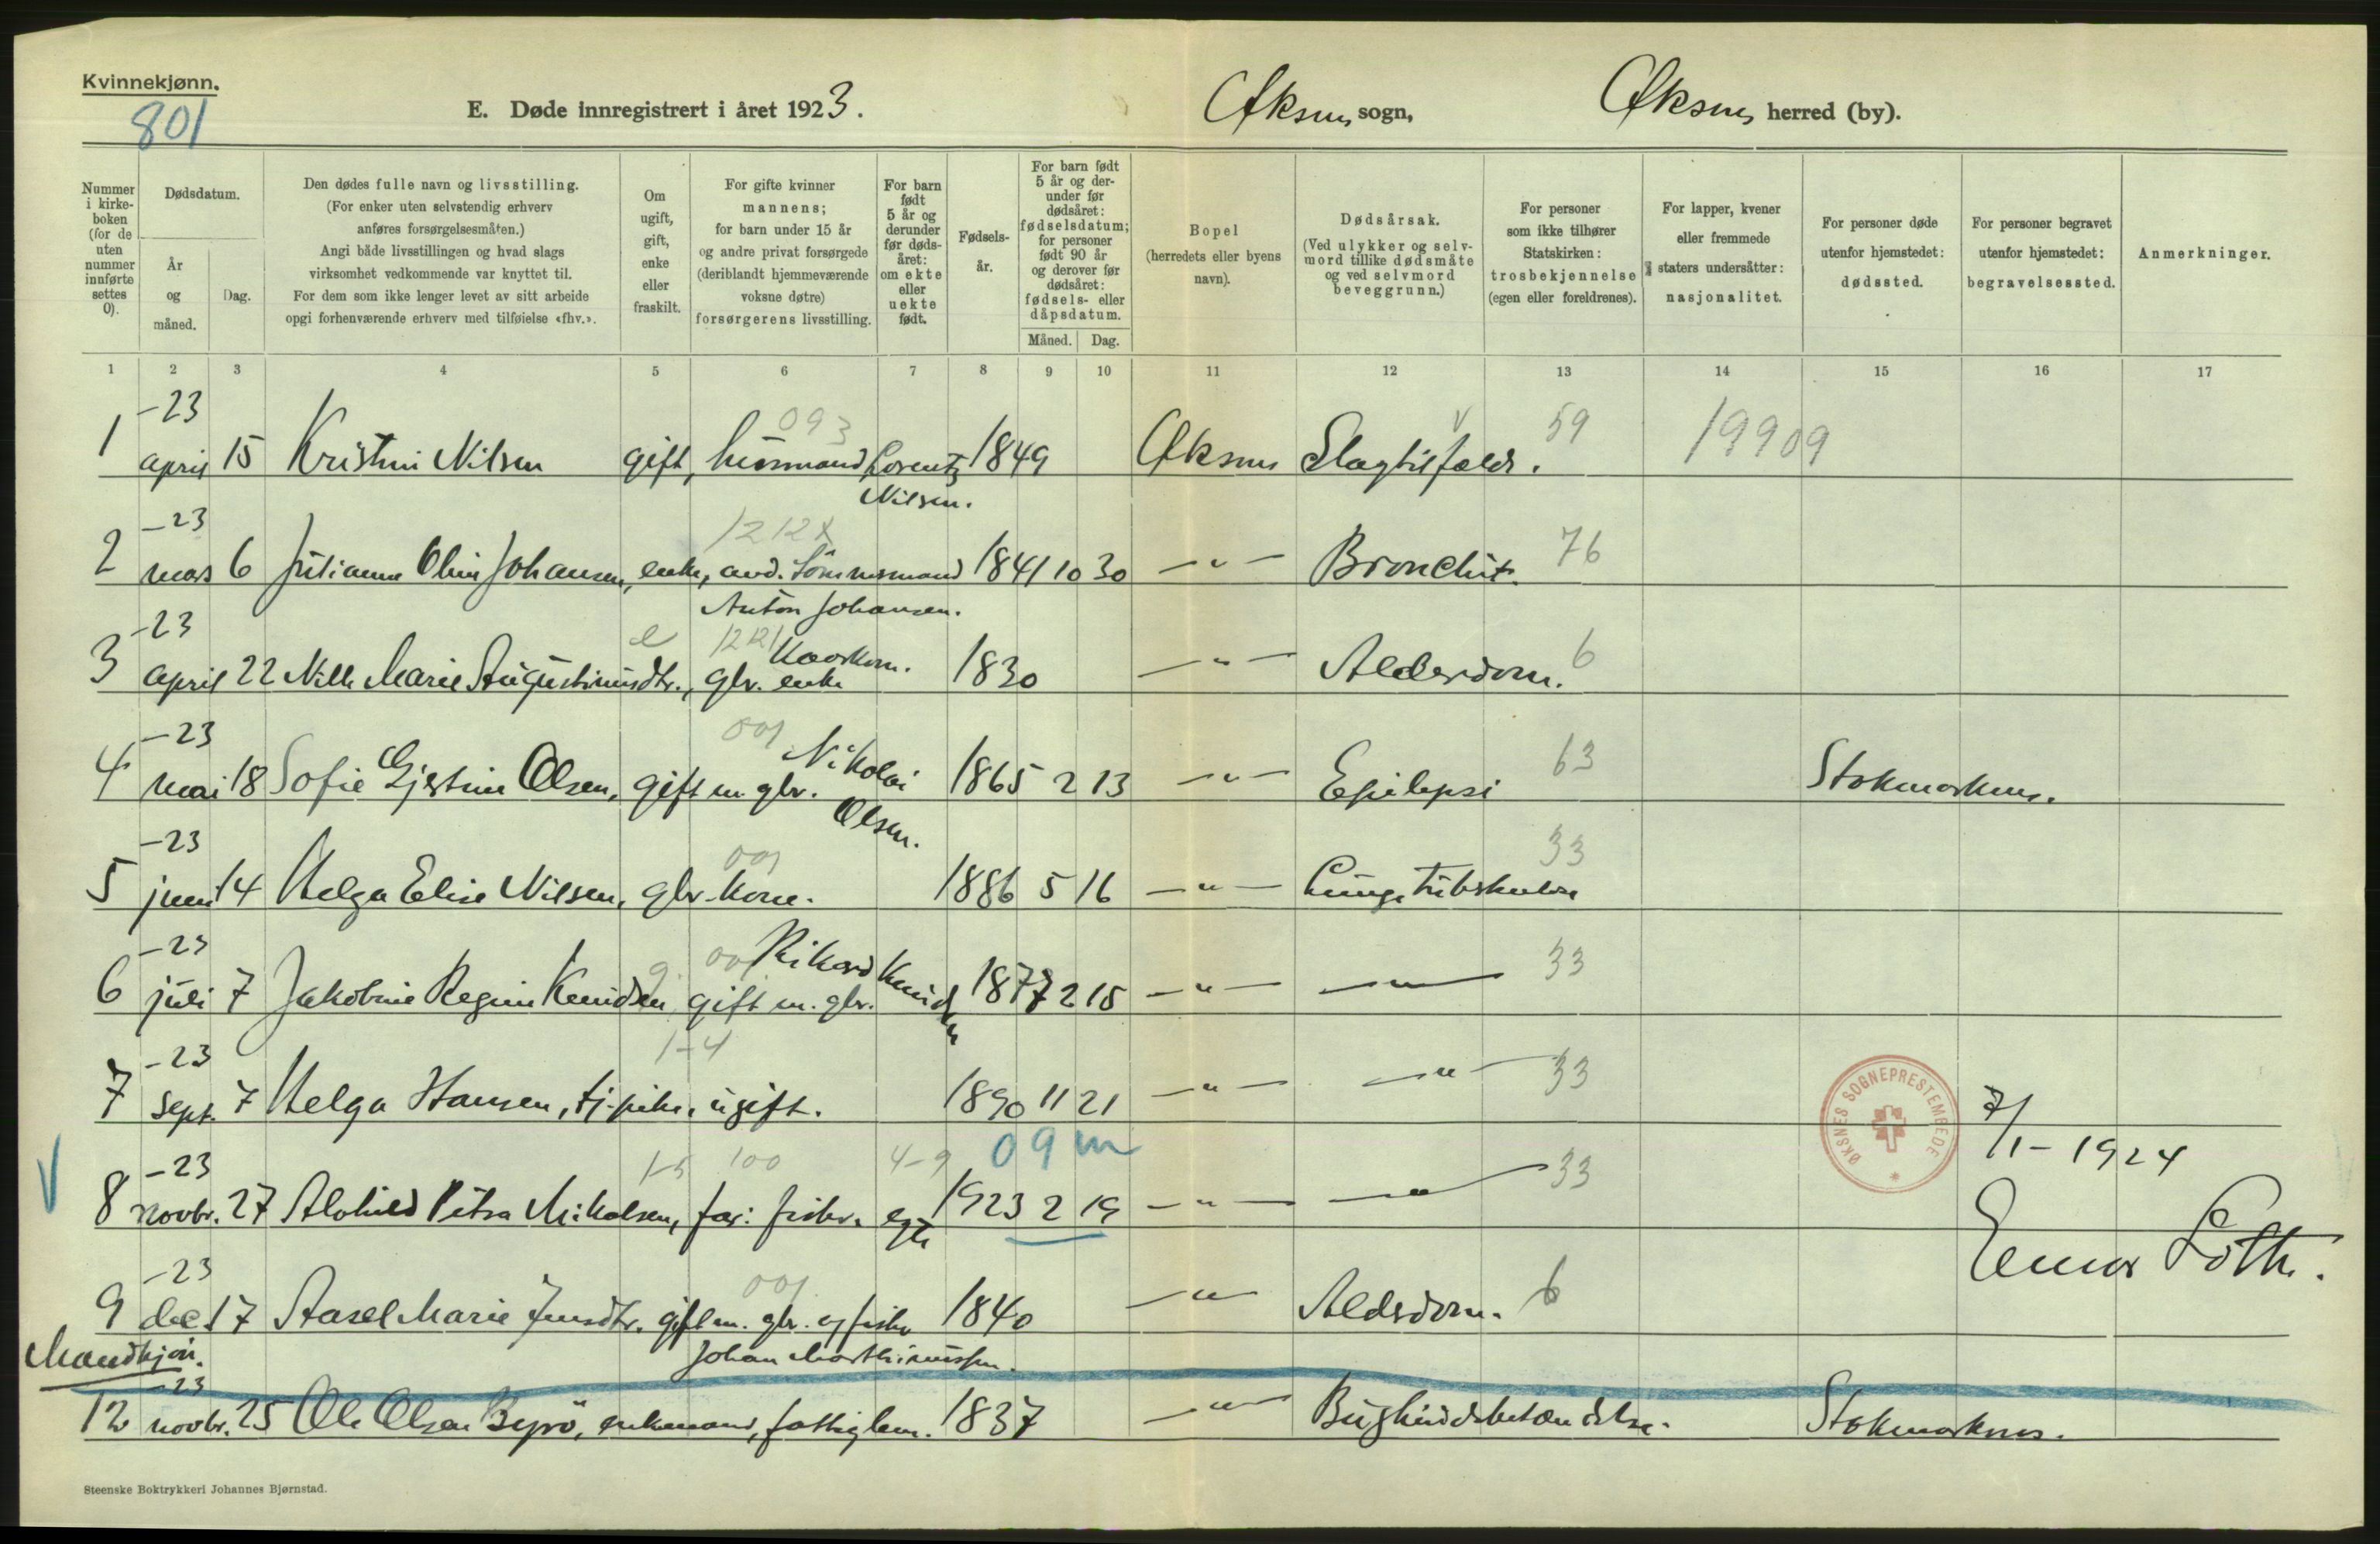 Kvinnekjønn.
801
E. Døde innregistrert i året 1923.
Øksnes sogn,
Øksnes herred (by).
Nummer i kirkeboken (for de uten nummer innførte settes 0).
Dødsdatum.
År og måned.
Dag.
Den dødes fulle navn og livsstilling.
(For enker uten selvstendig erhverv anføres forsørgelsesmåten.)
Angi både livsstillingen og hvad slags virksomhet vedkommende var knyttet til.
For dem som ikke lenger levet av sitt arbeide opgi forhenværende erhverv med tilføielse «fhv.».
Om ugift, gift, enke eller fraskilt.
For gifte kvinner mannens; for barn under 15 år og andre privat forsørgede (deriblandt hjemmeværende voksne døtre) forsørgerens livsstilling.
For barn født 5 år og derunder før dødsåret: om ekte eller uekte født.
Fødselsår.
For barn født 5 år og derunder før dødsåret: fødselsdatum; for personer født 90 år og derover før dødsåret: fødsels- eller dåpsdatum.
Måned.
Dag.
Bopel (herredets eller byens navn).
Dødsårsak.
(Ved ulykker og selvmord tillike dødsmåte og ved selvmord beveggrunn.)
For personer som ikke tilhører Statskirken: trosbekjennelse (egen eller foreldrenes).
For lapper, kvener eller fremmede staters undersåtter: nasjonalitet.
For personer døde utenfor hjemstedet: dødssted.
For personer begravet utenfor hjemstedet: begravelsessted.
Anmerkninger.
1 2 3 4 5 6 7 8 9 10 11 12 13 14 15 16 17
-23 093 59 19909
1 april 15 Kristine Nilsen gift, Lorentz 1849 Øksnes Slagtilfælde.
Nilsen.
-23 76
2 mars 6 Juliane Oline Johansen, enke, 1841 10 30 -"- Bronchit.
Anton Johansen.
-23 e 1221 6
3 april 22 Marie gbr. enke 1830 -"- Alderdom.
-23 001 Nikolai 63
4 mai 18 Sofie Gjertine Olsen, gift m. gbr. 1865 2 13 -"- Epilepsi Stokmarknes.
Olsen.
-23 001 33
5 juni 14 Helga Elise Nilsen, gbr. kone. 1886 5 16 -"- Lungetuberkulose
-23 g. 001 Rikard Knudsen 33
6 juli 7 Jakobine Regine Knudsen gift m. gbr. 1877 2 15 -"- -"-
-23 1-4 33
7 sept. 7 Helga Hansen, tj.pike, ugift. 1890 11 21 -"- -"-
ØKSNES SOGNEPRESTEMBEDE
7/1-1924
09 m
-23 1-5 100 4-9 33
8 novbr. 27 Alvhild Petra Mikalsen, far: fisker. egte 1923 2 19 -"- -"-
-23 001 6
9 dec 17 Aasel Marie Jensdtr. gift m. gbr. og fisker 1840 -"- Aldsdom.
Johan
Mandkjøn.
-23
12 novbr. 25 Ole Olsen enkemand, fattiglem. 1837 -"- Bughindebetændelse. Stokmarknes.
Steenske Boktrykkeri Johannes Bjørnstad.